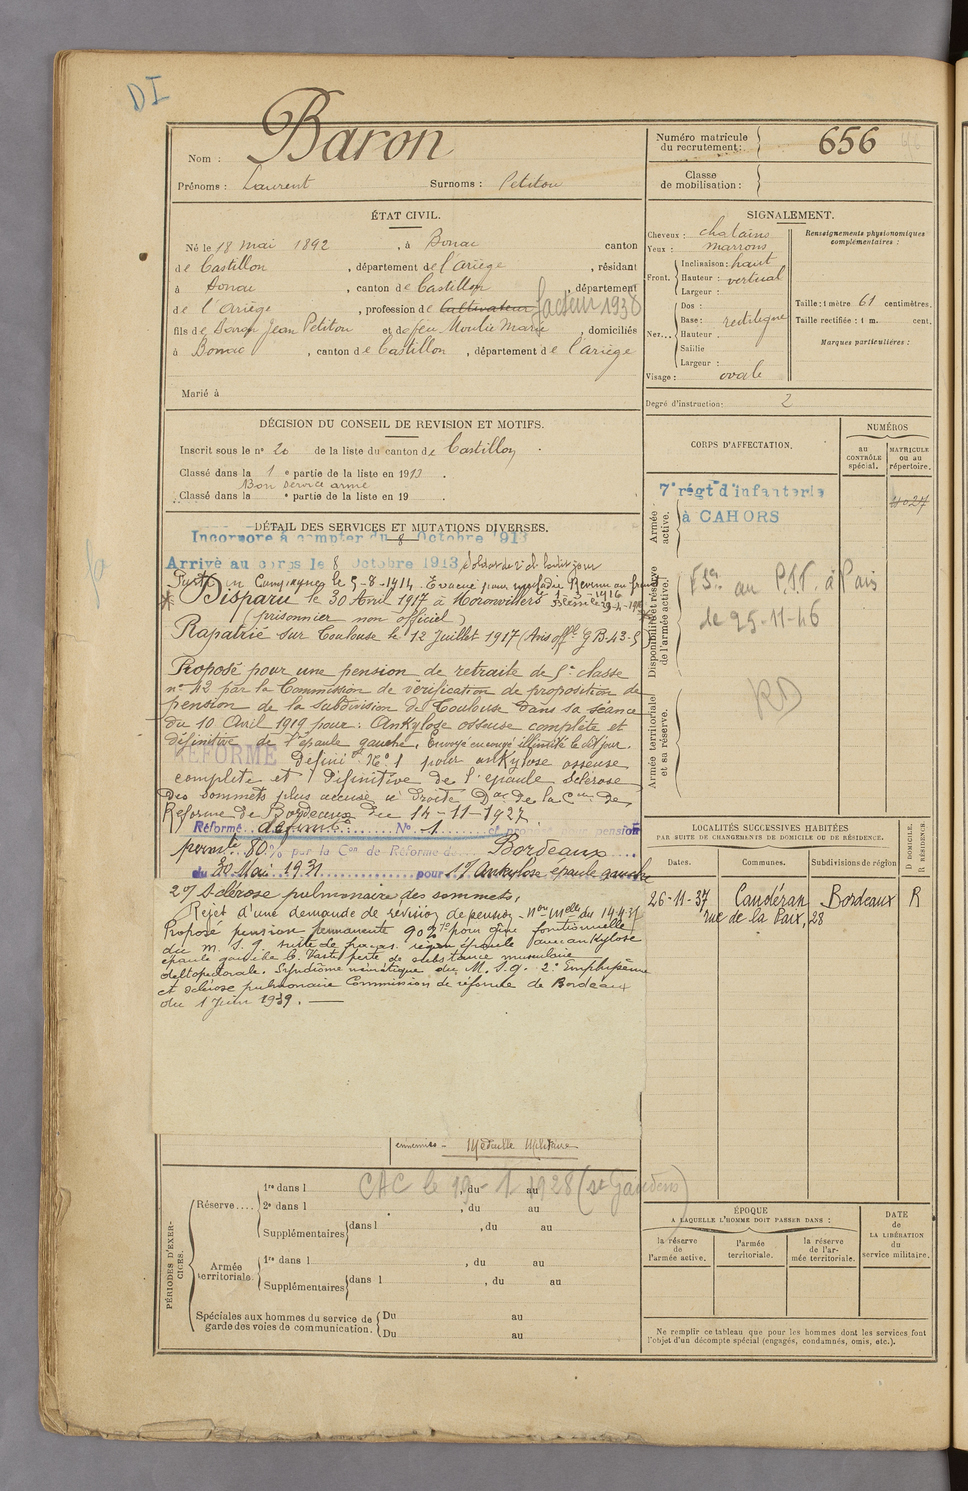 DI
Nom : Baron
Prénoms : Laurent Surnoms : Petitou
Numéro matricule du recrutement : 656
Classe de mobilisation :
ÉTAT CIVIL.
Né le 18 mai 1892, à Bonac canton
de Castillon, département de l'ariège, résidant
à Bonac, canton de Castillon, département
de l'ariège, profession de Cultivateur facteur 1938
fils de Baron Jean Petitou et de feu Moulie Marie, domiciliés
à Bonac, canton de Castillon, département de l'ariège
Marié à
SIGNALEMENT.
Cheveux : chatains
Yeux : marrons
Front. Inclinaison : haut
Hauteur : vertical
Largeur :
Nez... Dos :
Base : rectiligne
Hauteur :
Saillie
Largeur :
Visage : ovale
Renseignements physionomiques complémentaires :
Taille : 1 mètre 61 centimètres.
Taille rectifiée : 1 m. cent.
Marques particulières :
Degré d'instruction : 2
DÉCISION DU CONSEIL DE REVISION ET MOTIFS.
Inscrit sous le n° 20 de la liste du canton de Castillon
Classé dans la 1e partie de la liste en 1913
Bon service armé
Classé dans la e partie de la liste en 19
DÉTAIL DES SERVICES ET MUTATIONS DIVERSES.
Incorporé à compter du 8 Octobre 1913
Arrivé au corps le 8 Octobre 1913 Soldat de 2e cl. le dit jour
Parti en Campagne le 5-8-1914. Evacué pour maladie Revenu au front
Disparu le 30 Avril 1917 à Moronvillers
(prisonnier non officiel)
Rapatrié sur Toulouse le 12 Juillet 1917 (Avis offel G B-43-5)
Proposé pour une pension de retraite de 5e classe
n° 42 par la Commission de vérification de proposition de
pension de la subdivision de Toulouse dans sa séance
du 10 Avril 1919 pour : Ankylose osseuse complète et
définitive de l'épaule gauche. Envoyé en congé illimité le dit jour.
REFORMÉ Définitif N° 1 pour ankylose osseuse
complète et définitive de l'épaule sclérose
des sommets plus accusé à droite Don de la Con de
Réforme de Bordeaux du 14-11-1927.
Réformé définit. N° 1 et proposé pour pension
permte 80% par la Con de Réforme de Bordeaux
du 30 Mai 1931 pour 1°/ Ankylose épaule gauche
2°/ Sclérose pulmonaire des sommets.
Rejet d'une demande de revision de pension
Proposé pension permanente 90% pour gêne fonctionnelle
du m. S. g. suite de région épaule avec ankylose
épaule gauche Vaste perte de substance musculaire
deltopectorale. Syndrôme névritique du M. S. g. 2° Emphysème
et sclérose pulmonaire Commission de réforme de Bordeaux
du 1 Juin 1939.
ennemies - Médaille Militaire
CORPS D'AFFECTATION.
NUMÉROS
au CONTRÔLE spécial.
MATRICULE ou au répertoire.
Armée active.
7e régt d'infanterie
à CAHORS
4027
Disponibilité et réserve de l'armée active.
au P.T.T. à Paris
de 25-11-46
RD
Armée territoriale et sa réserve.
LOCALITÉS SUCCESSIVES HABITÉES
PAR SUITE DE CHANGEMENTS DE DOMICILE OU DE RÉSIDENCE.
Dates. Communes. Subdivisions de région
D DOMICILE. R RÉSIDENCE.
26-11-37 Caudéran Bordeaux R
rue de la Paix, 28
PÉRIODES D'EXERCICES.
Réserve.... 1re dans l , du au
2e dans l , du au
Supplémentaires dans l , du au
CAC le 19-1 1928 (St Gaudens)
Armée territoriale 1re dans l , du au
Supplémentaires dans l , du au
Spéciales aux hommes du service de garde des voies de communication. Du au
Du au
ÉPOQUE
A LAQUELLE L'HOMME DOIT PASSER DANS :
la réserve de l'armée active.
l'armée territoriale.
la réserve de l'armée territoriale.
DATE de LA LIBÉRATION du service militaire.
Ne remplir ce tableau que pour les hommes dont les services font
l'objet d'un décompte spécial (engagés, condamnés, omis, etc.).